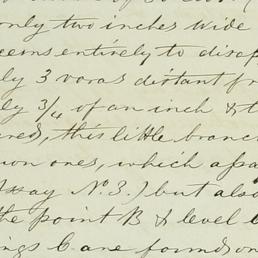 only two inches wide
seems entirely to disap
ly 3 varas distant fr
ly 3/4 of an inch & t
ered), this little branc
own ones, which appa
Assay No. 3.) but also
the point B & level
ngs C are found on